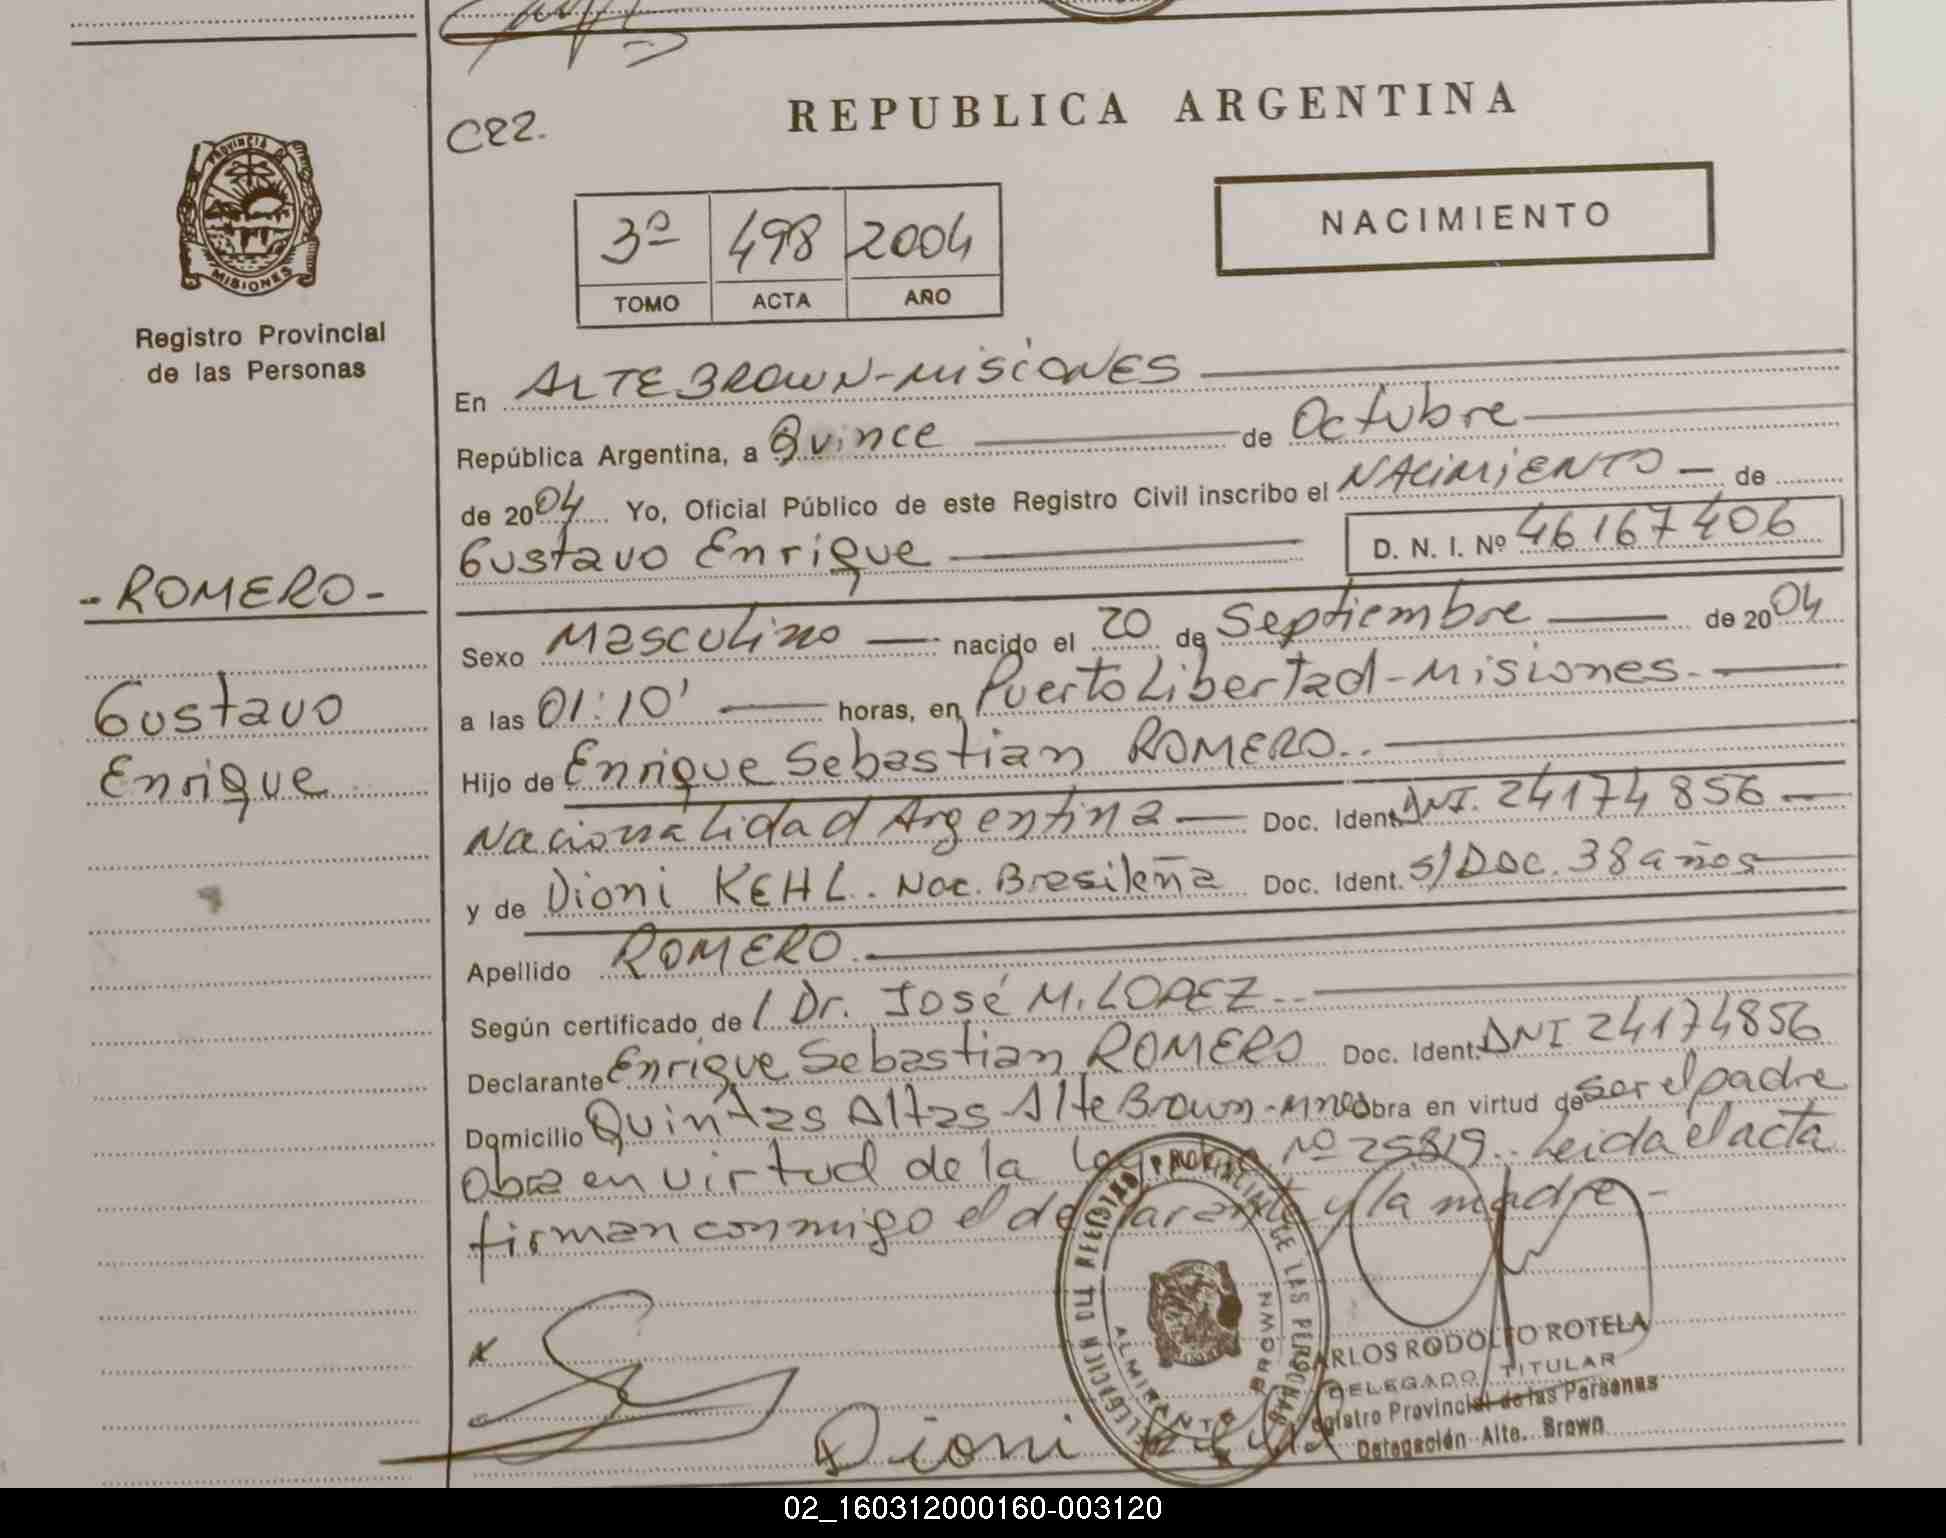 REPUBLICA ARGENTINA
C22.
3º 498 2004
TOMO ACTA AÑO
NACIMIENTO
PROVINCIA DE
MISIONES
Registro Provincial
de las Personas
- ROMERO -
Gustavo
Enrique
En ALTE BROWN - MISIONES
República Argentina, a Quince de Octubre
de 2004 Yo, Oficial Público de este Registro Civil inscribo el NACIMIENTO - de
Gustavo Enrique D. N. I. Nº 46167406
Sexo Masculino nacido el 20 de Septiembre de 2004
a las 01:10' horas, en Puerto Libertad - Misiones.
Hijo de Enrique Sebastian ROMERO..
Nacionalidad Argentina Doc. Ident. DNI. 24174856
y de Dioni KEHL. Nac. Brasileña Doc. Ident. s/Doc. 38 años
Apellido ROMERO.
Según certificado de / Dr. José M. LOPEZ..
Declarante Enrique Sebastian ROMERO Doc. Ident. DNI 24174856
Domicilio Quintas Altas Alte Brown - Mnes Obra en virtud de ser el padre
Obra en virtud de la Ley Nº 25819.. Leida el acta
firman conmigo el declarante y la madre -
DELEGACION DEL REGISTRO PROVINCIAL DE LAS PERSONAS
ALMIRANTE BROWN
CARLOS RODOLFO ROTELA
DELEGADO TITULAR
Registro Provincial de las Personas
Delegación Alte. Brown
x
x Dioni
02_160312000160-003120